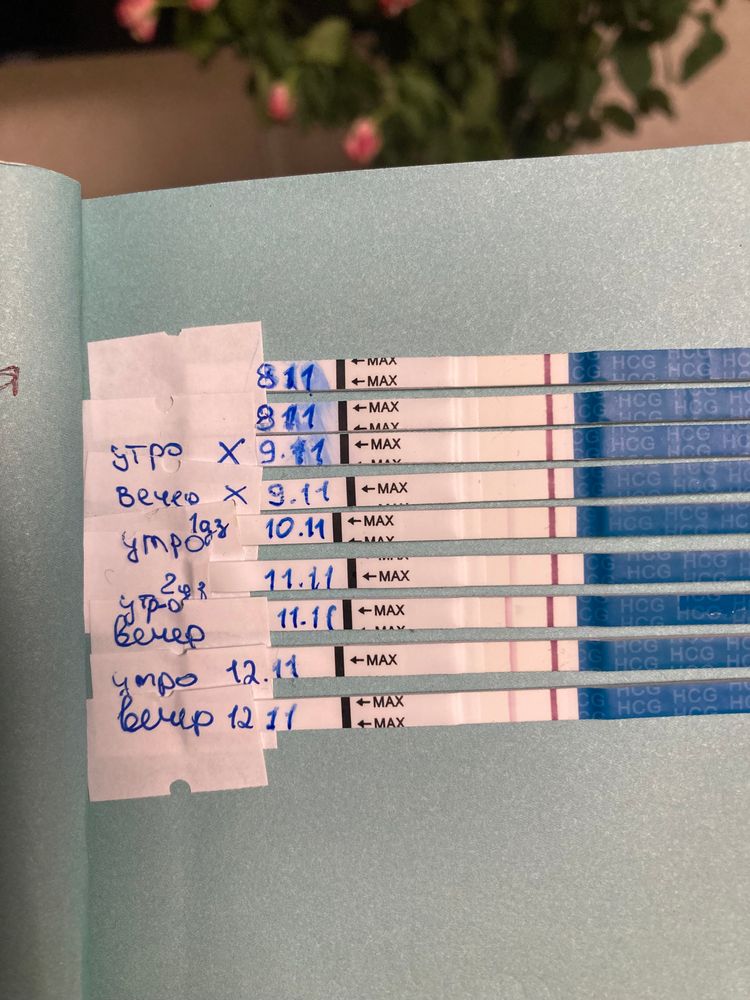 я
811
←MAX
←MAX
HCG HCG
811
←MAX
←MAX
HCG HCG
утро X 9.11
←MAX
HCG HCG
вечер X 9.11
←MAX
HCG HCG
утро 10.11
←MAX
HCG HCG
утро 11.11
←MAX
HCG HCG
вечер 11.11
←MAX
HCG HCG
утро 12.11
←MAX
HCG HCG
вечер 12 11
←MAX
←MAX
HCG HCG